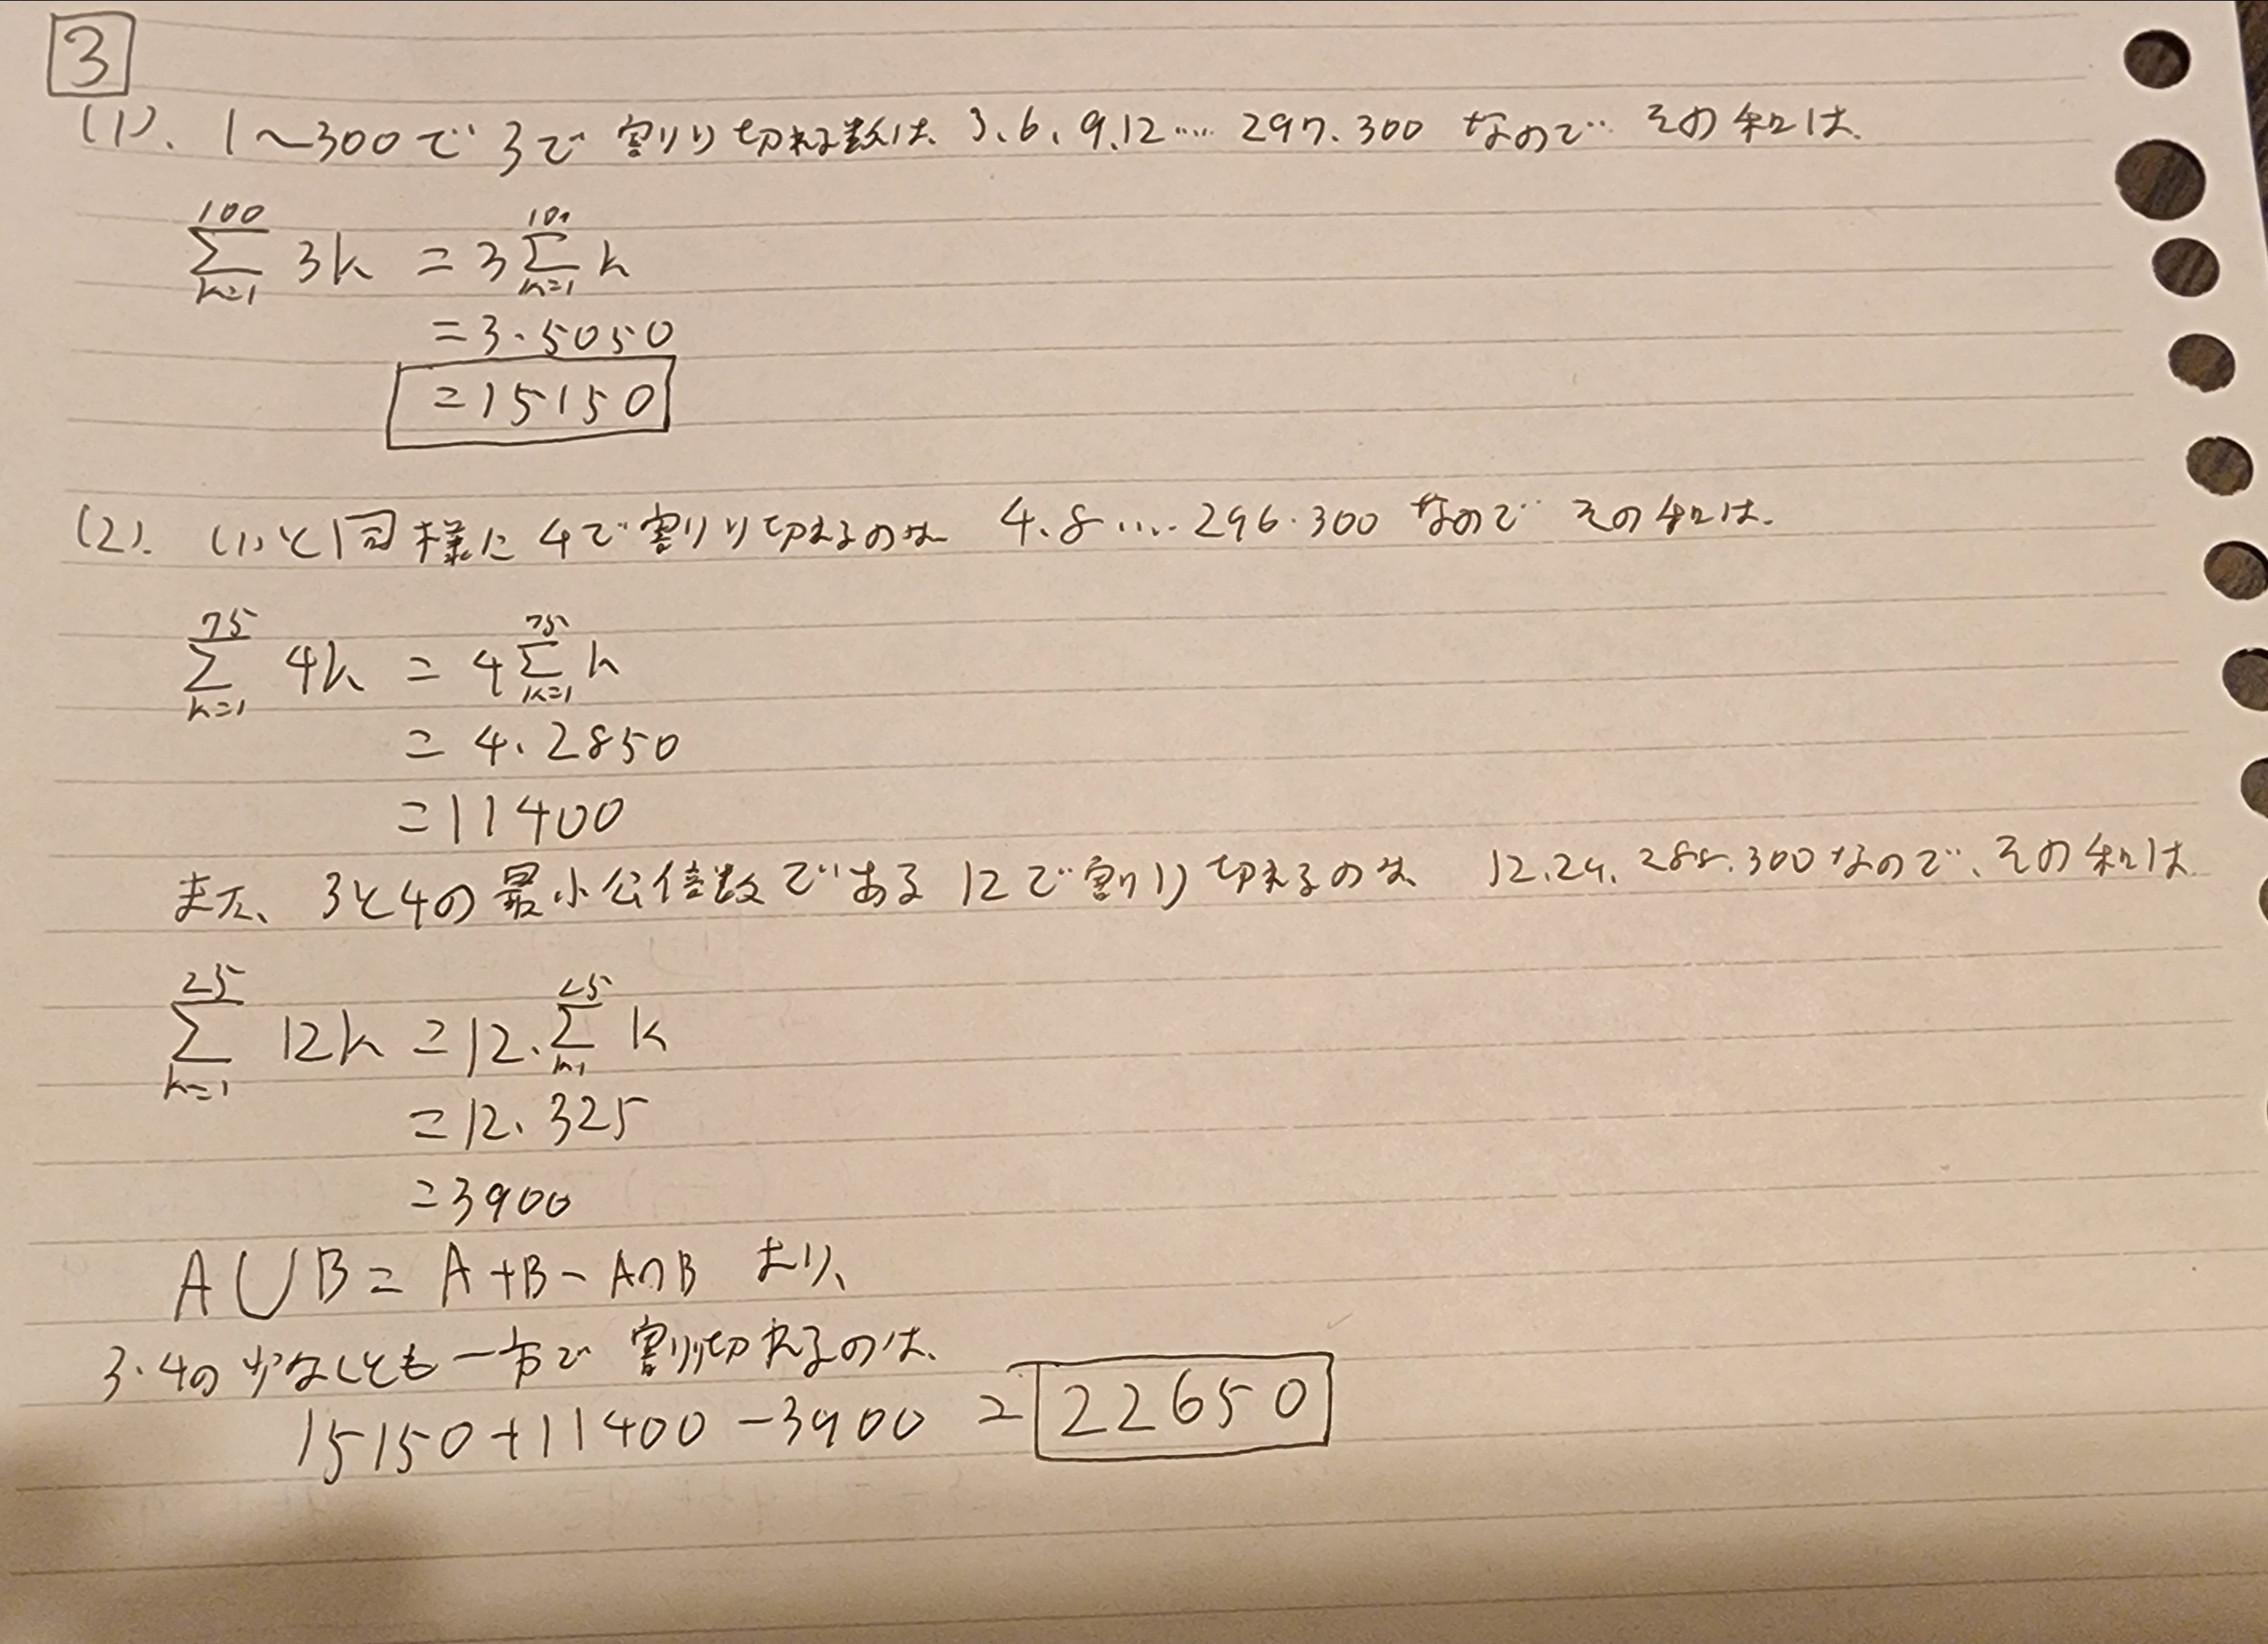 3
(1). 1～300で3で割りり切れる数は、3.6.9.12.... 297.300 なので その和は、
100 Σ k=1 3k = 3 100 Σ k=1 k
= 3・5050
= 15150
(2). (1)と同様に4で割りり切れるのは 4.8.... 296.300 なので その和は、
75 Σ k=1 4k = 4 75 Σ k=1 k
= 4・2850
= 11400
また、3と4の最小公倍数である12で割りり切れるのは 12.24. 288.300なので、その和は
25 Σ k=1 12k = 12・25 Σ k=1 k
= 12・325
= 3900
A∪B = A+B-A∩B より、
3・4の少なくとも一方で割り切れるのは、
15150+11400-3900 = 22650